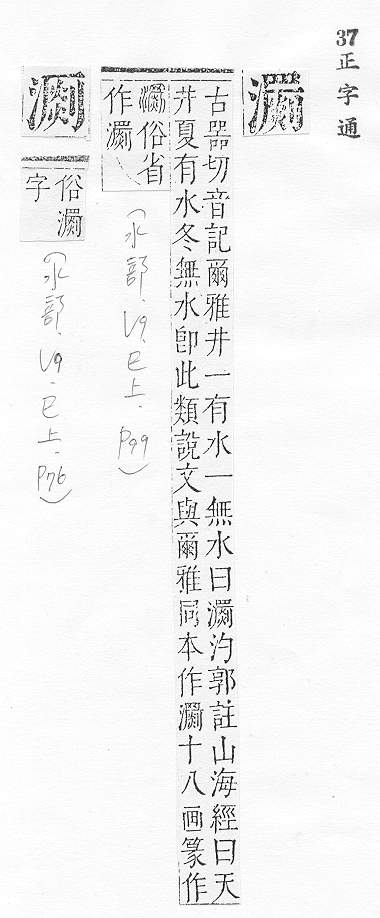 37 正字通
瀱
古器切音記爾雅井一有水一無水曰瀱汋郭註山海經曰天
井夏有水冬無水卽此類說文與爾雅同本作瀱十八画篆作
瀱俗省
作
(水部.巳上.P99)
俗瀱
字
(水部.巳上.P76)